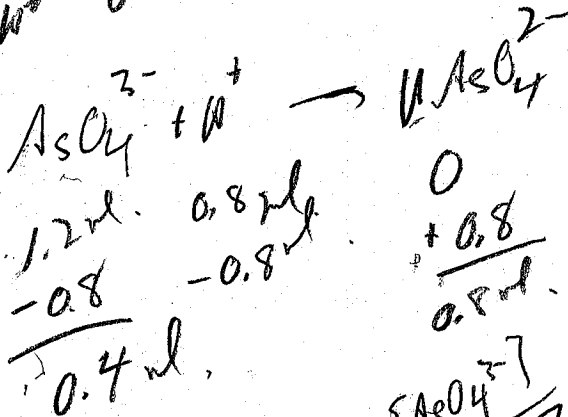 AsO₄³⁻ + H⁺ → HAsO₄²⁻
1.2 ml. 0.8 ml. 0
-0.8 -0.8 ml. +0.8
0.4 ml. 0.8 ml.
AsO₄³⁻]